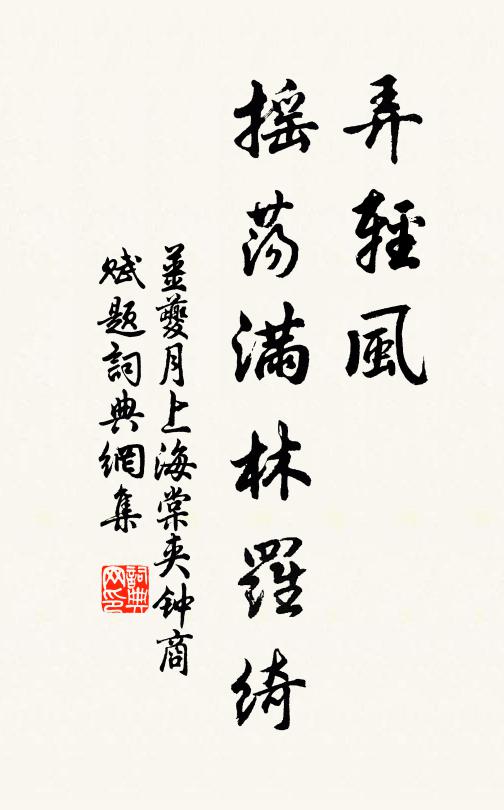 弄輕風
搖蕩滿林羅綺
姜夔月上海棠夹钟商
赋题詞典網集
詞典
网印